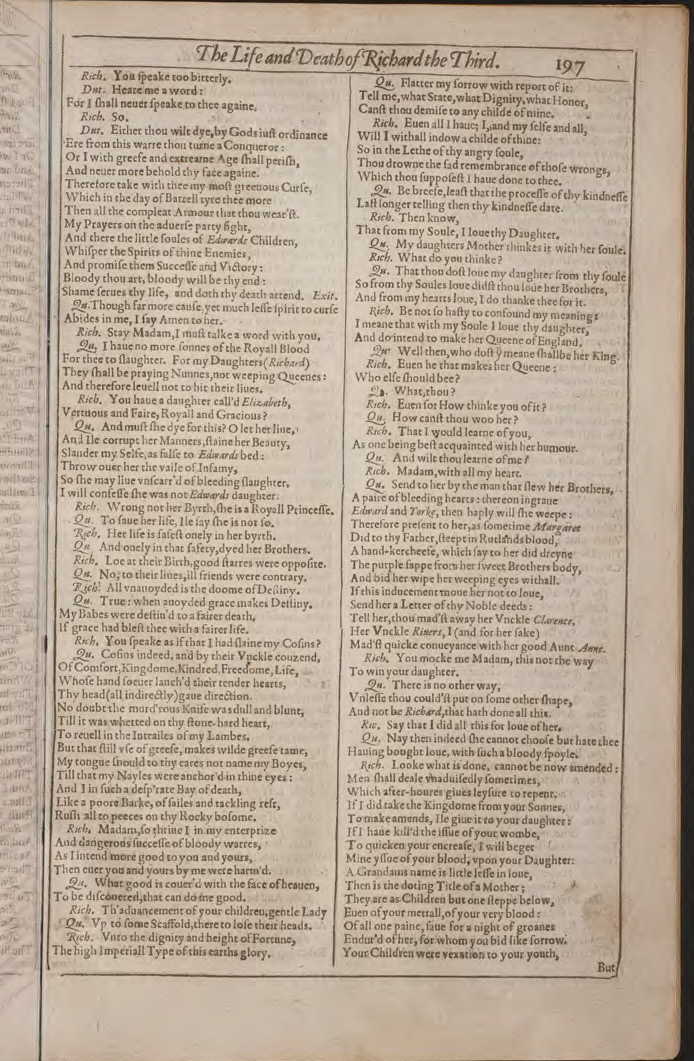 The Life and Death of Richard the Third. 197
Rich. You ſpeake too bitterly.
Dut. Heare me a word:
For I ſhall neuer ſpeake to thee againe.
Rich. So.
Dut. Either thou wilt dye, by Gods iuſt ordinance
Ere from this warre thou turne a Conqueror:
Or I with greefe and extreame Age ſhall periſh,
And neuer more behold thy face againe.
Therefore take with thee my moſt greeuous Curſe,
Which in the day of Battell tyre thee more
Then all the compleat Armour that thou wear'ſt.
My Prayers on the aduerſe party fight,
And there the little ſoules of Edwards Children,
Whiſper the Spirits of thine Enemies,
And promiſe them Succeſſe and Victory:
Bloody thou art, bloody will be thy end:
Shame ſerues thy life, and doth thy death attend. Exit.
Qu. Though far more cauſe, yet much leſſe ſpirit to curſe
Abides in me, I ſay Amen to her.
Rich. Stay Madam, I muſt talke a word with you.
Qu. I haue no more ſonnes of the Royall Blood
For thee to ſlaughter. For my Daughters (Richard)
They ſhall be praying Nunnes, not weeping Queenes:
And therefore leuell not to hit their liues.
Rich. You haue a daughter call'd Elizabeth,
Vertuous and Faire, Royall and Gracious?
Qu. And muſt ſhe dye for this? O let her liue,
And Ile corrupt her Manners, ſtaine her Beauty,
Slander my Selfe, as falſe to Edwards bed:
Throw ouer her the vaile of Infamy,
So ſhe may liue vnſcarr'd of bleeding ſlaughter,
I will confeſſe ſhe was not Edwards daughter.
Rich. Wrong not her Byrth, ſhe is a Royall Princeſſe.
Qu. To ſaue her life, Ile ſay ſhe is not ſo.
Rich. Her life is ſafeſt onely in her byrth.
Qu. And onely in that ſafety, dyed her Brothers.
Rich. Loe at their Birth, good ſtarres were oppoſite.
Qu. No, to their liues, ill friends were contrary.
Rich. All vnauoyded is the doome of Deſtiny.
Qu. True: when auoyded grace makes Deſtiny.
My Babes were deſtin'd to a fairer death,
If grace had bleſt thee with a fairer life.
Rich. You ſpeake as if that I had ſlaine my Coſins?
Qu. Coſins indeed, and by their Vnckle couzend,
Of Comfort, Kingdome, Kindred, Freedome, Life,
Whoſe hand ſoeuer lanch'd their tender hearts,
Thy head (all indirectly) gaue direction.
No doubt the murd'rous Knife was dull and blunt,
Till it was whetted on thy ſtone-hard heart,
To reuell in the Intrailes of my Lambes.
But that ſtill vſe of greefe, makes wilde greefe tame,
My tongue ſhould to thy eares not name my Boyes,
Till that my Nayles were anchor'd in thine eyes:
And I in ſuch a deſp'rate Bay of death,
Like a poore Barke, of ſailes and tackling reft,
Ruſh all to peeces on thy Rocky boſome.
Rich. Madam, ſo thriue I in my enterprize
And dangerous ſucceſſe of bloody warres,
As I intend more good to you and yours,
Then euer you and yours by me were harm'd.
Qu. What good is couer'd with the face of heauen,
To be diſcouered, that can do me good.
Rich. Th'aduancement of your children, gentle Lady
Qu. Vp to ſome Scaffold, there to loſe their heads.
Rich. Vnto the dignity and height of Fortune,
The high Imperiall Type of this earths glory.
Qu. Flatter my ſorrow with report of it:
Tell me, what State, what Dignity, what Honor,
Canſt thou demiſe to any childe of mine.
Rich. Euen all I haue; I, and my ſelfe and all,
Will I withall indow a childe of thine:
So in the Lethe of thy angry ſoule,
Thou drowne the ſad remembrance of thoſe wrongs,
Which thou ſuppoſeſt I haue done to thee.
Qu. Be breefe, leaſt that the proceſſe of thy kindneſſe
Laſt longer telling then thy kindneſſe date.
Rich. Then know,
That from my Soule, I loue thy Daughter.
Qu. My daughters Mother thinkes it with her ſoule.
Rich. What do you thinke?
Qu. That thou doſt loue my daughter from thy ſoule
So from thy Soules loue didſt thou loue her Brothers,
And from my hearts loue, I do thanke thee for it.
Rich. Be not ſo haſty to confound my meaning:
I meane that with my Soule I loue thy daughter,
And do intend to make her Queene of England.
Qu. Well then, who doſt ẏ meane ſhallbe her King.
Rich. Euen he that makes her Queene:
Who elſe ſhould bee?
Qu. What, thou?
Rich. Euen ſo: How thinke you of it?
Qu. How canſt thou woo her?
Rich. That I would learne of you,
As one being beſt acquainted with her humour.
Qu. And wilt thou learne of me?
Rich. Madam, with all my heart.
Qu. Send to her by the man that ſlew her Brothers,
A paire of bleeding hearts: thereon ingraue
Edward and Yorke, then haply will ſhe weepe:
Therefore preſent to her, as ſometime Margaret
Did to thy Father, ſteept in Rutlands blood,
A hand-kercheefe, which ſay to her did dreyne
The purple ſappe from her ſweet Brothers body,
And bid her wipe her weeping eyes withall.
If this inducement moue her not to loue,
Send her a Letter of thy Noble deeds:
Tell her, thou mad'ſt away her Vnckle Clarence,
Her Vnckle Riuers, I (and for her ſake)
Mad'ſt quicke conueyance with her good Aunt Anne.
Rich. You mocke me Madam, this not the way
To win your daughter.
Qu. There is no other way,
Vnleſſe thou could'ſt put on ſome other ſhape,
And not be Richard, that hath done all this.
Ric. Say that I did all this for loue of her.
Qu. Nay then indeed ſhe cannot chooſe but hate thee
Hauing bought loue, with ſuch a bloody ſpoyle.
Rich. Looke what is done, cannot be now amended:
Men ſhall deale vnaduiſedly ſometimes,
Which after-houres giues leyſure to repent.
If I did take the Kingdome from your Sonnes,
To make amends, Ile giue it to your daughter:
If I haue kill'd the iſſue of your wombe,
To quicken your encreaſe, I will beget
Mine yſſue of your blood, vpon your Daughter:
A Grandams name is little leſſe in loue,
Then is the doting Title of a Mother;
They are as Children but one ſteppe below,
Euen of your mettall, of your very blood:
Of all one paine, ſaue for a night of groanes
Endur'd of her, for whom you bid like ſorrow.
Your Children were vexation to your youth,
But